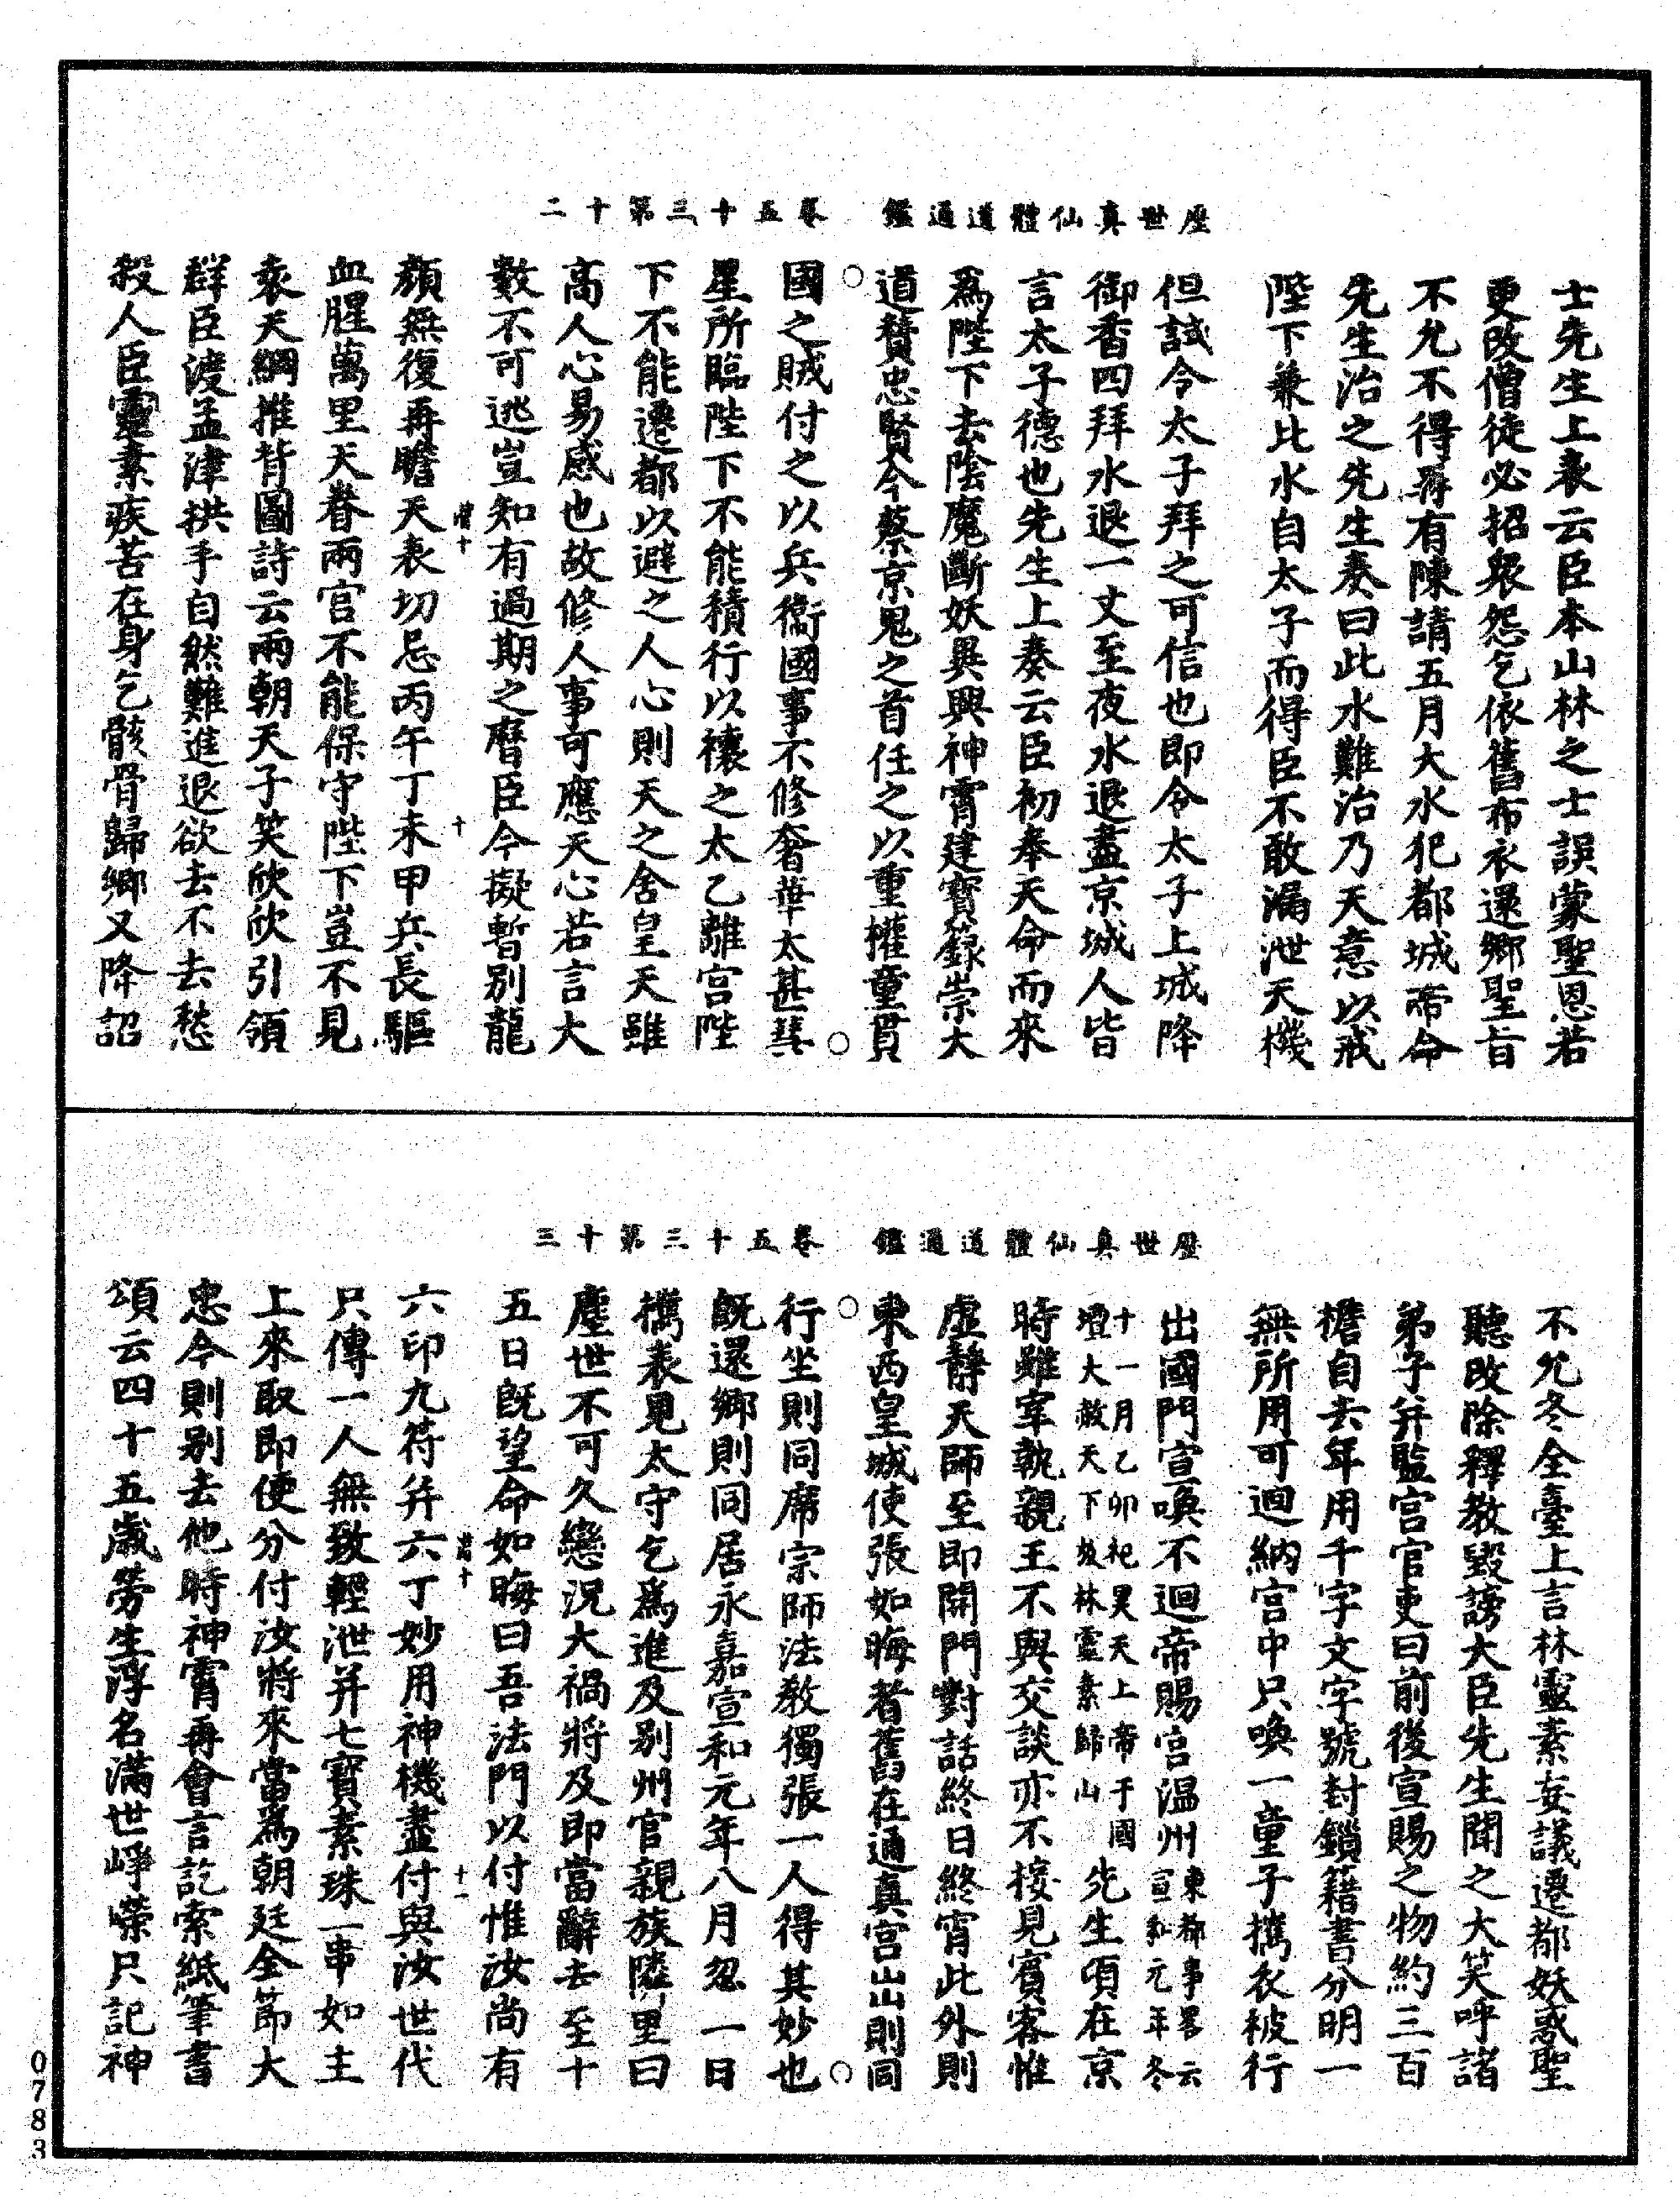 歷世真仙體道通鑑　卷五十三第十二
士先生上表云臣本山林之士誤蒙聖恩若
更改僧徒必招衆怨乞依舊布衣還鄉聖旨
不允不得再有陳請五月大水犯都城帝命
先生治之先生奏曰此水難治乃天意以戒
陛下兼比水自太子而得臣不敢漏泄天機
但試令太子拜之可信也即令太子上城降
御香四拜水退一丈至夜水退盡京城人皆
言太子德也先生上奏云臣初奉天命而來
爲陛下去陰魔斷妖異興神霄建寶籙崇大
道贊忠賢今蔡京鬼之首任之以重權童貫
國之賊付之以兵衞國事不修奢華太甚彗
星所臨陛下不能積行以禳之太乙離宮陛
下不能遷都以避之人心則天之舍皇天雖
高人心易感也故修人事可應天心若言大
數不可逃豈知有過期之曆臣今擬暫别龍
顏無復再瞻天表切忌丙午丁未甲兵長驅
血腥萬里天眷兩宫不能保守陛下豈不見
袁天綱推背圖詩云兩朝天子笑欣欣引領
群臣渡孟津拱手自然難進退欲去不去愁
殺人臣靈素疾苦在身乞骸骨歸鄉又降詔
歷世真仙體道通鑑　卷五十三第十三
不允冬全臺上言林靈素妄議遷都妖惑聖
聽改除釋教毀謗大臣先生聞之大笑呼諸
弟子并監宫官吏曰前後宣賜之物約三百
檐自去年用千字文字號封鎖籍書分明一
無所用可迴納宫中只喚一童子攜衣被行
出國門宣喚不迴帝賜宫温州東都事畧云宣和元年冬
十一月乙卯祀昊天上帝于國壇大赦天下放林靈素歸山先生頃在京
時雖宰執親王不與交談亦不接見賓客惟
虛靜天師至即開門對話終日終宵此外則
東西皇城使張如晦者舊在通真宫出則同
行坐則同席宗師法教獨張一人得其妙也
既還鄉則同居永嘉宣和元年八月忽一日
攜表見太守乞爲進及别州官親族隣里曰
塵世不可久戀況大禍將及即當辭去至十
五日既望命如晦曰吾法門以付惟汝尚有
六印九符并六丁妙用神機盡付與汝世代
只傳一人無致輕泄并七寶素珠一串如主
上來取即便分付汝將來當爲朝廷全節大
忠今則别去他時神霄再會言訖索紙筆書
頌云四十五歲勞生浮名滿世崢嶸只記神
0783